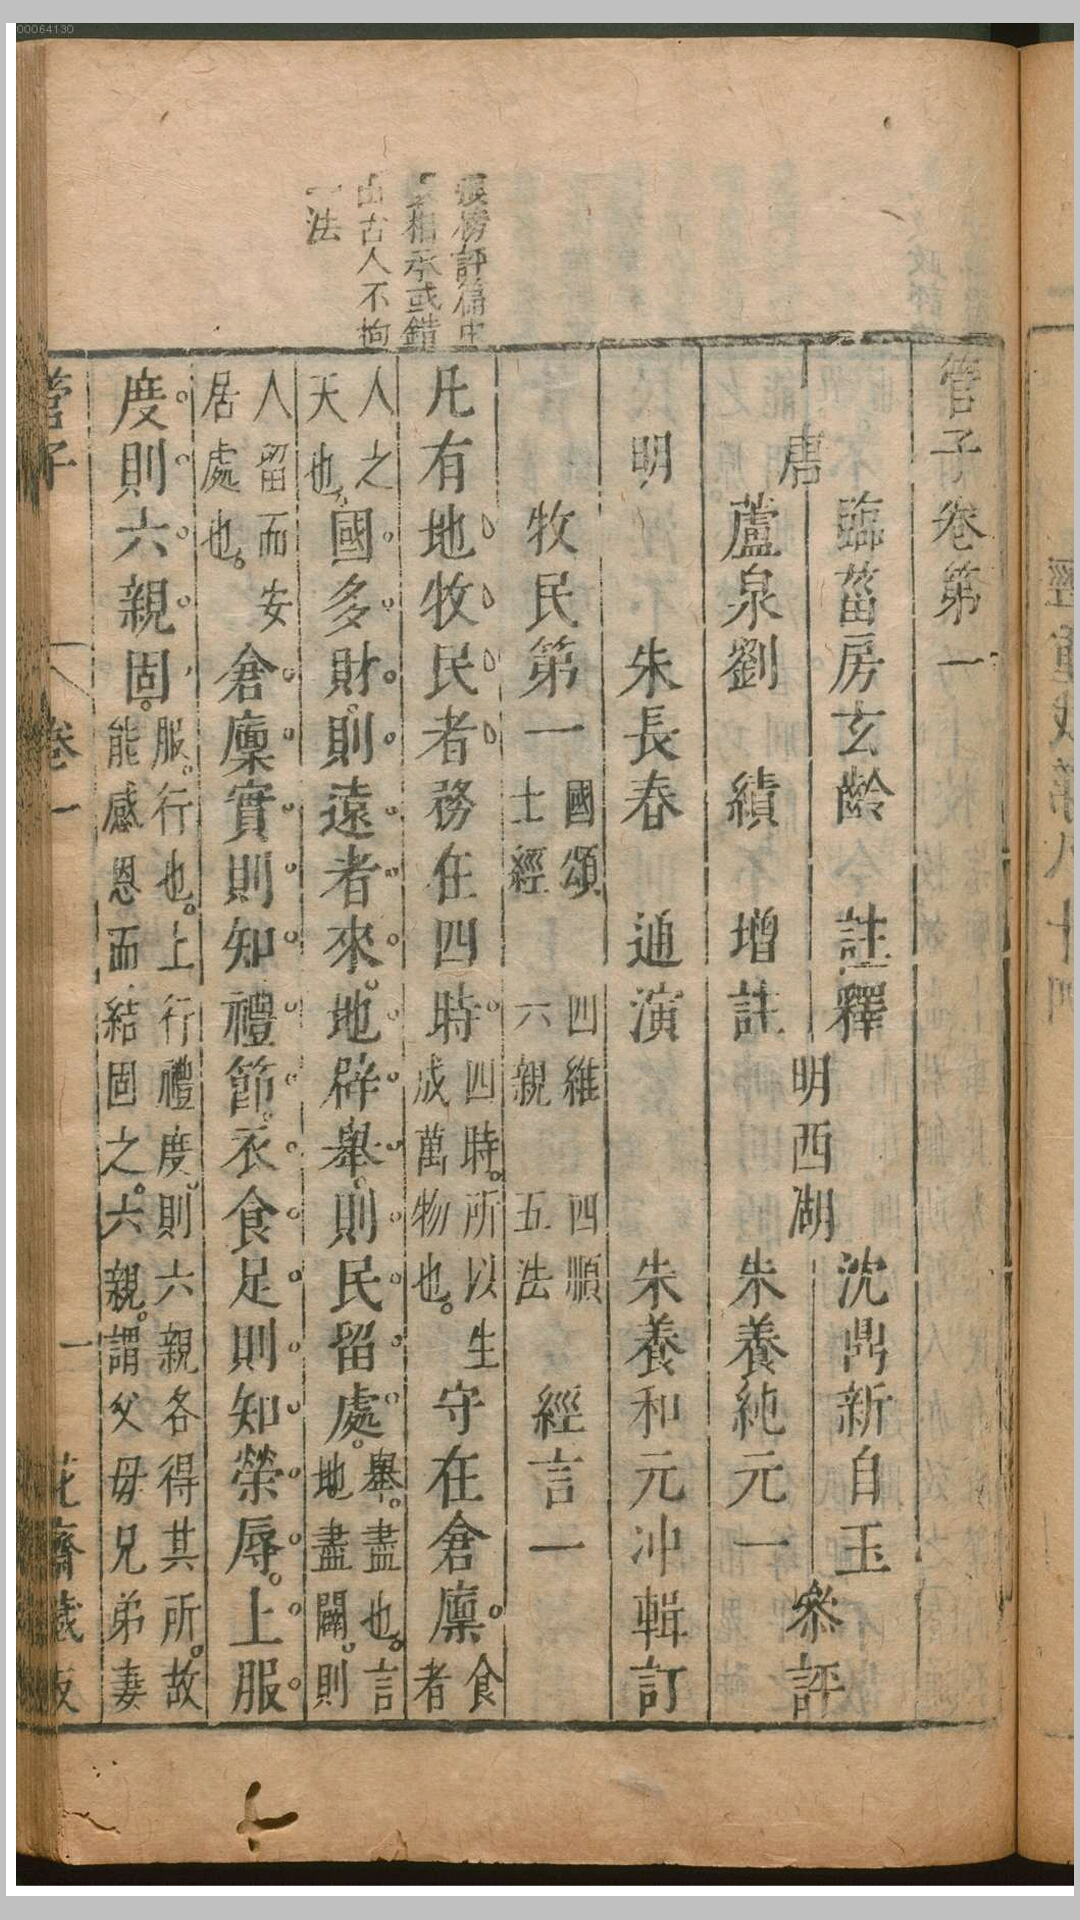 00064130
張榜評篇中
相承或錯
出古人不拘
一法
管子卷第一
唐
臨菑房玄齡 註釋
蘆泉劉 績 增註
明西湖
沈鼎新自玉
朱養純元一
叅評
明 朱長春 通演
朱養和元冲輯訂
牧民第一
國頌
士經
四維
六親
四順
五法
經言一
凡有地牧民者務在四時
四時。所以生
成萬物也。
守在倉廪。
食
者
人之
天也。
國多財。則遠者來。地辟舉。則民留處。
舉。盡也。言
地盡闢。則
人留而安
居處也。
倉廩實則知禮節。衣食足則知榮辱。上服
度則六親固。
服。行也。上行禮度。則六親各得其所。故
能感恩而結固之。六親。謂父毋兄弟妻
管子
卷一
一
花齋藏板